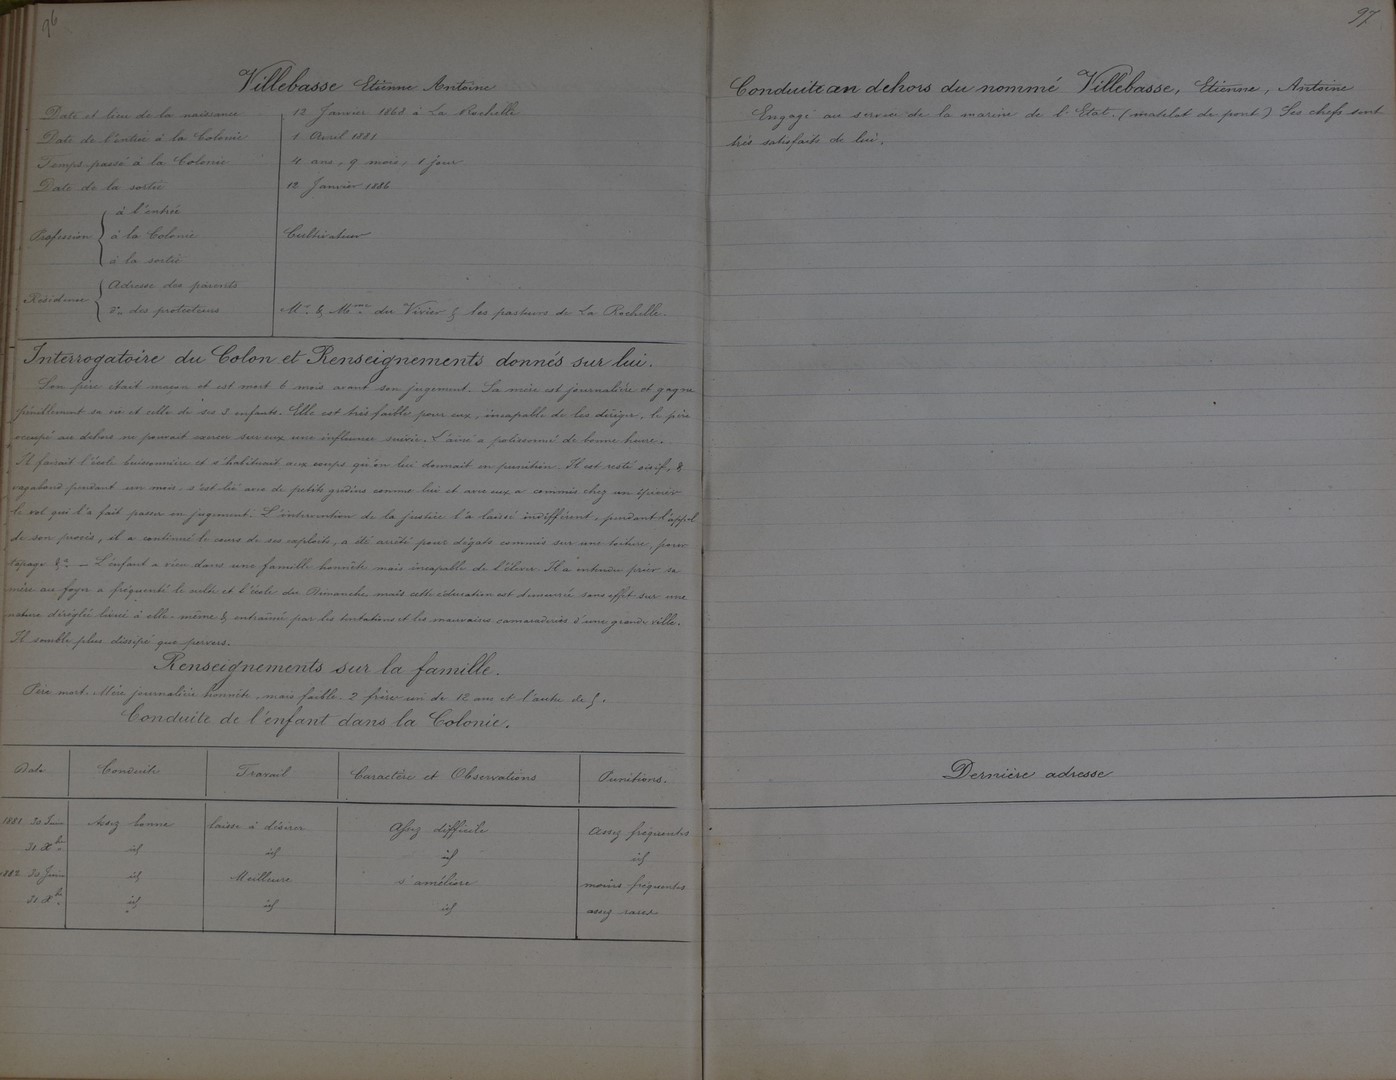 96
Villebasse Etienne Antoine
Date et lieu de la naissance 12 Janvier 1868 à La Rochelle
Date de l'entrée à la Colonie 1 Avril 1881
Temps passé à la Colonie 4 ans, 9 mois, 1 jour
Date de la sortie 12 Janvier 1886
Profession
à l'entrée
à la Colonie Cultivateur
à la sortie
Résidence
Adresse des parents
do des protecteurs Mr & Mme du Vivier & les pasteurs de La Rochelle.
Interrogatoire du Colon et Renseignements donnés sur lui.
Son père était maçon et est mort 6 mois avant son jugement. Sa mère est journalière et gagne
péniblement sa vie et celle de ses 3 enfants. Elle est très faible pour eux, incapable de les diriger, le père
occupé au dehors ne pouvait exercer sur eux une influence suivie. L'aîné a polissonné de bonne heure.
Il faisait l'école buissonnière et s'habituait aux coups qu'on lui donnait en punition. Il est resté oisif, &
vagabond pendant un mois, s'est lié avec de petits gredins comme lui et avec eux a commis chez un épicier
le vol qui l'a fait passer en jugement. L'intervention de la justice l'a laissé indifférent, pendant l'appel
de son procès, il a continué le cours de ses exploits, a été arrêté pour dégats commis sur une toiture, pour
tapage &a. — L'enfant a vécu dans une famille honnête mais incapable de l'élever. Il a entendu prier sa
mère au foyer a fréquenté le culte et l'école du Dimanche mais cette éducation est demeurée sans effet sur une
nature déréglée livrée à elle-même & entraînée par les tentations et les mauvaises camaraderies d'une grande ville.
Il semble plus dissipé que pervers.
Renseignements sur la famille.
Père mort. Mère journalière honnête, mais faible. 2 frères un de 12 ans et l'autre de 5.
Conduite de l'enfant dans la Colonie.
Date Conduite Travail Caractère et Observations Punitions.
1881 30 Juin Assez bonne laisse à désirer Assez difficile Assez fréquentes
31 Xbre id id id id
1882 30 Juin id Meilleure s'améliore moins fréquentes
31 Xbre id id id assez rares
97
Conduite en dehors du nommé Villebasse, Etienne, Antoine
Engagé au service de la marine de l'Etat. (matelot de pont) Ses chefs sont
très satisfaits de lui.
Dernière adresse